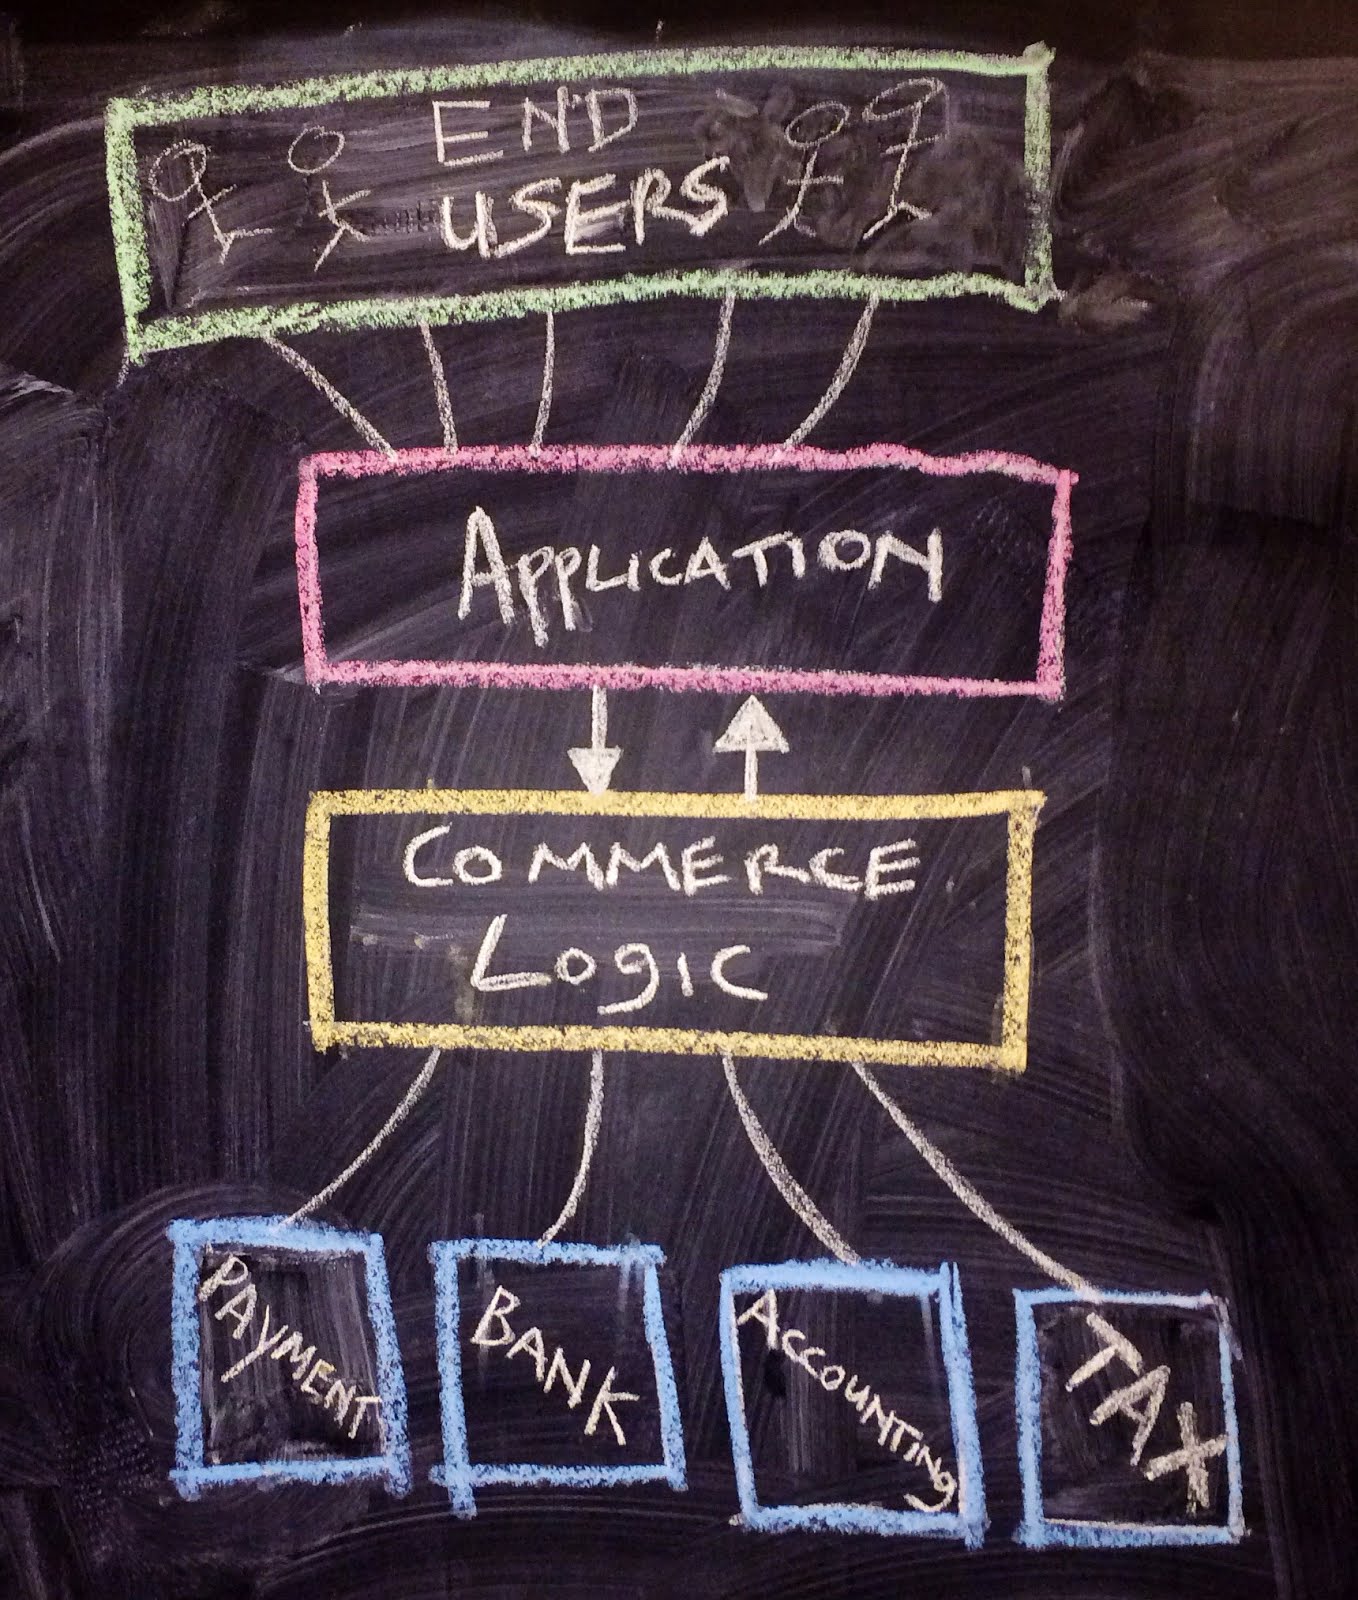 END
USERS
APPLICATION
COMMERCE
LOGIC
PAYMENT
BANK
ACCOUNTING
TAX